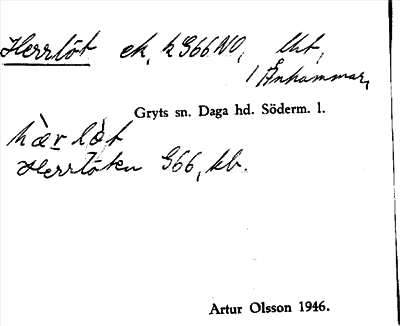 Herrlöt ek, k G66 NO, lht,
1 Änhammar,
Gryts sn. Daga hd. Söderm. l.
hærlöt
Herrlöten G66, kb.
Artur Olsson 1946.